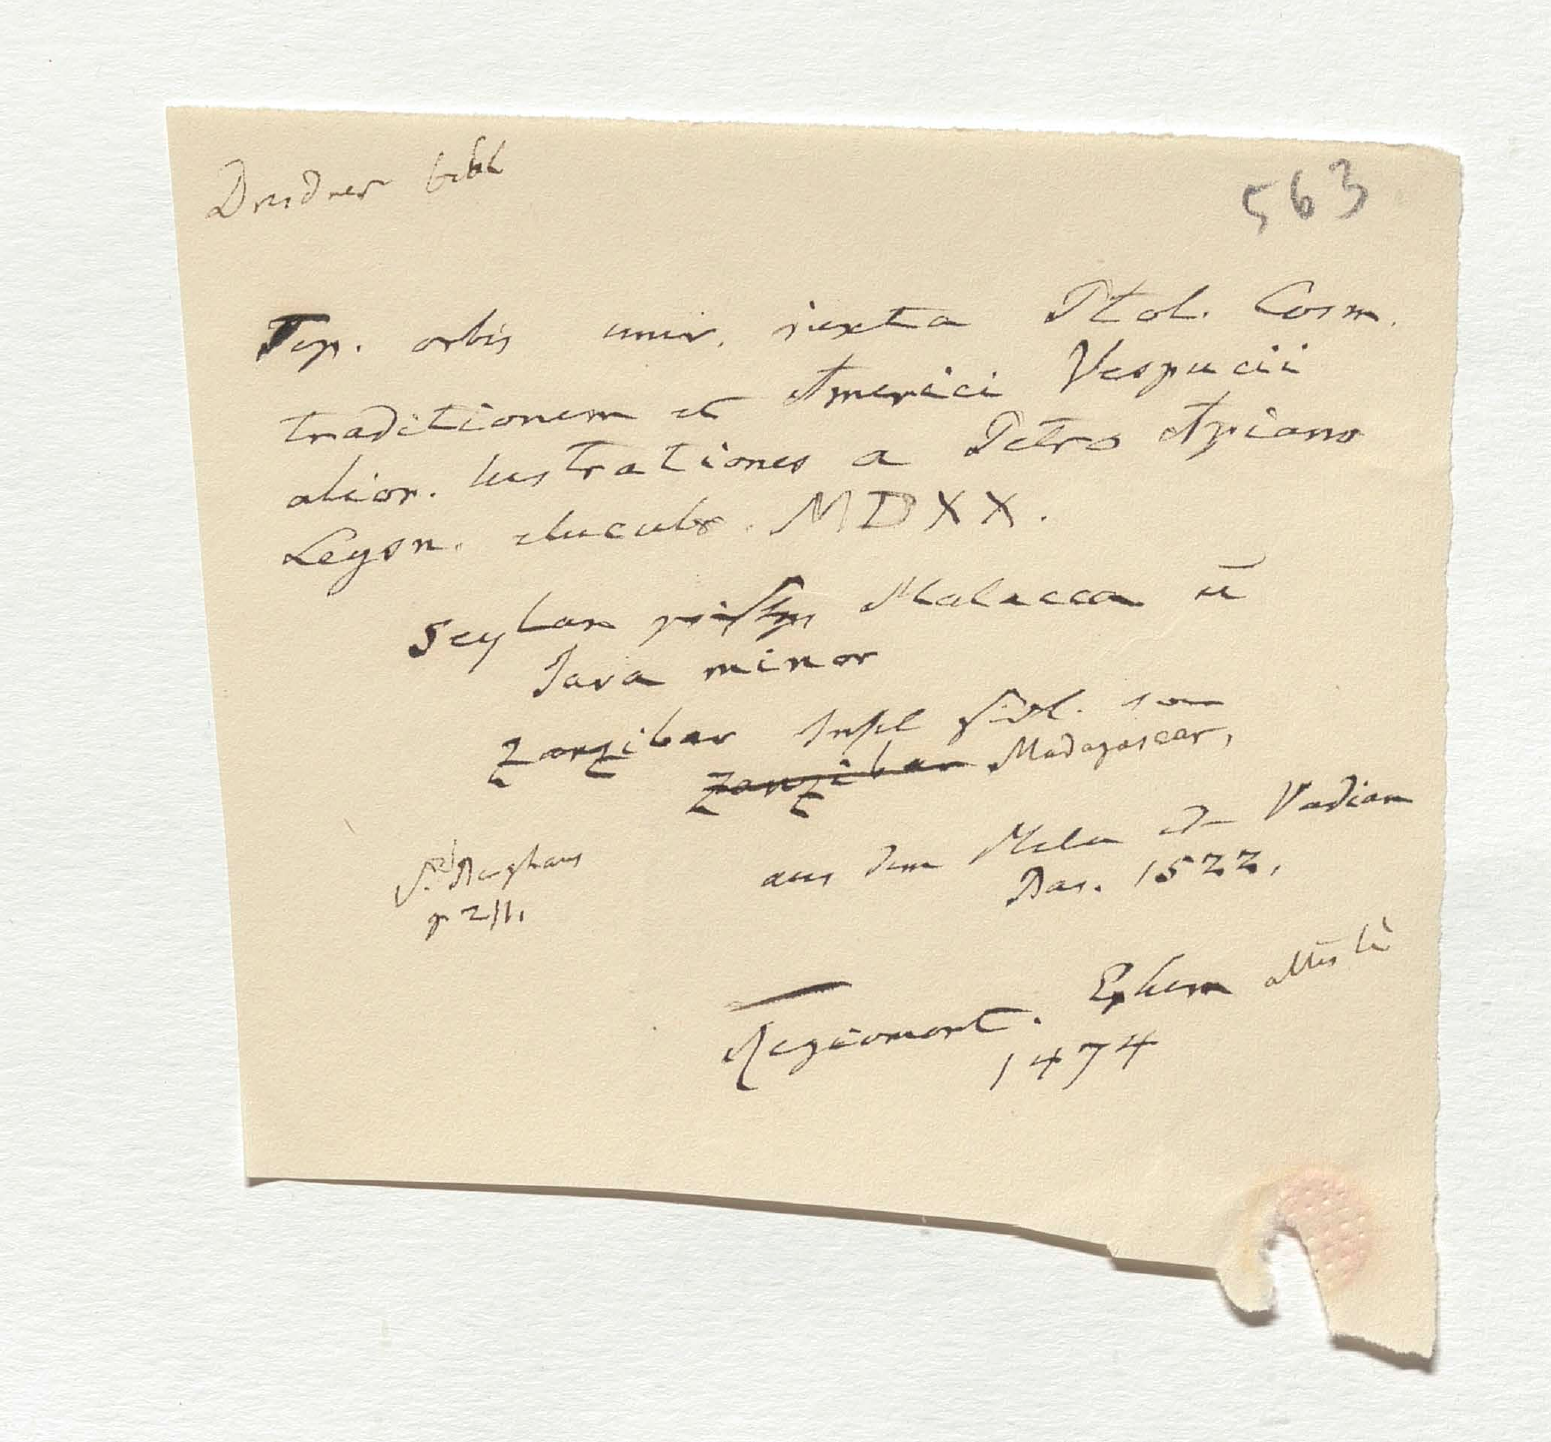 Dresdner bibl
563
Typ. orbis univ. juxta Ptol. Cosm.
traditionem et Americi Vespucii
alior. lustrationes a Petro Apiano
Leysn. elucubr. MDXX.
Seylan zwischen Malacca u
Java minor
Zanzibar Insel südl. von
Zanzibar Madagascar,
aus dem Mela ed Vadian
Bas. 1522,
Berghaus
p 211.
Regiomont. Ephem älteste
1474